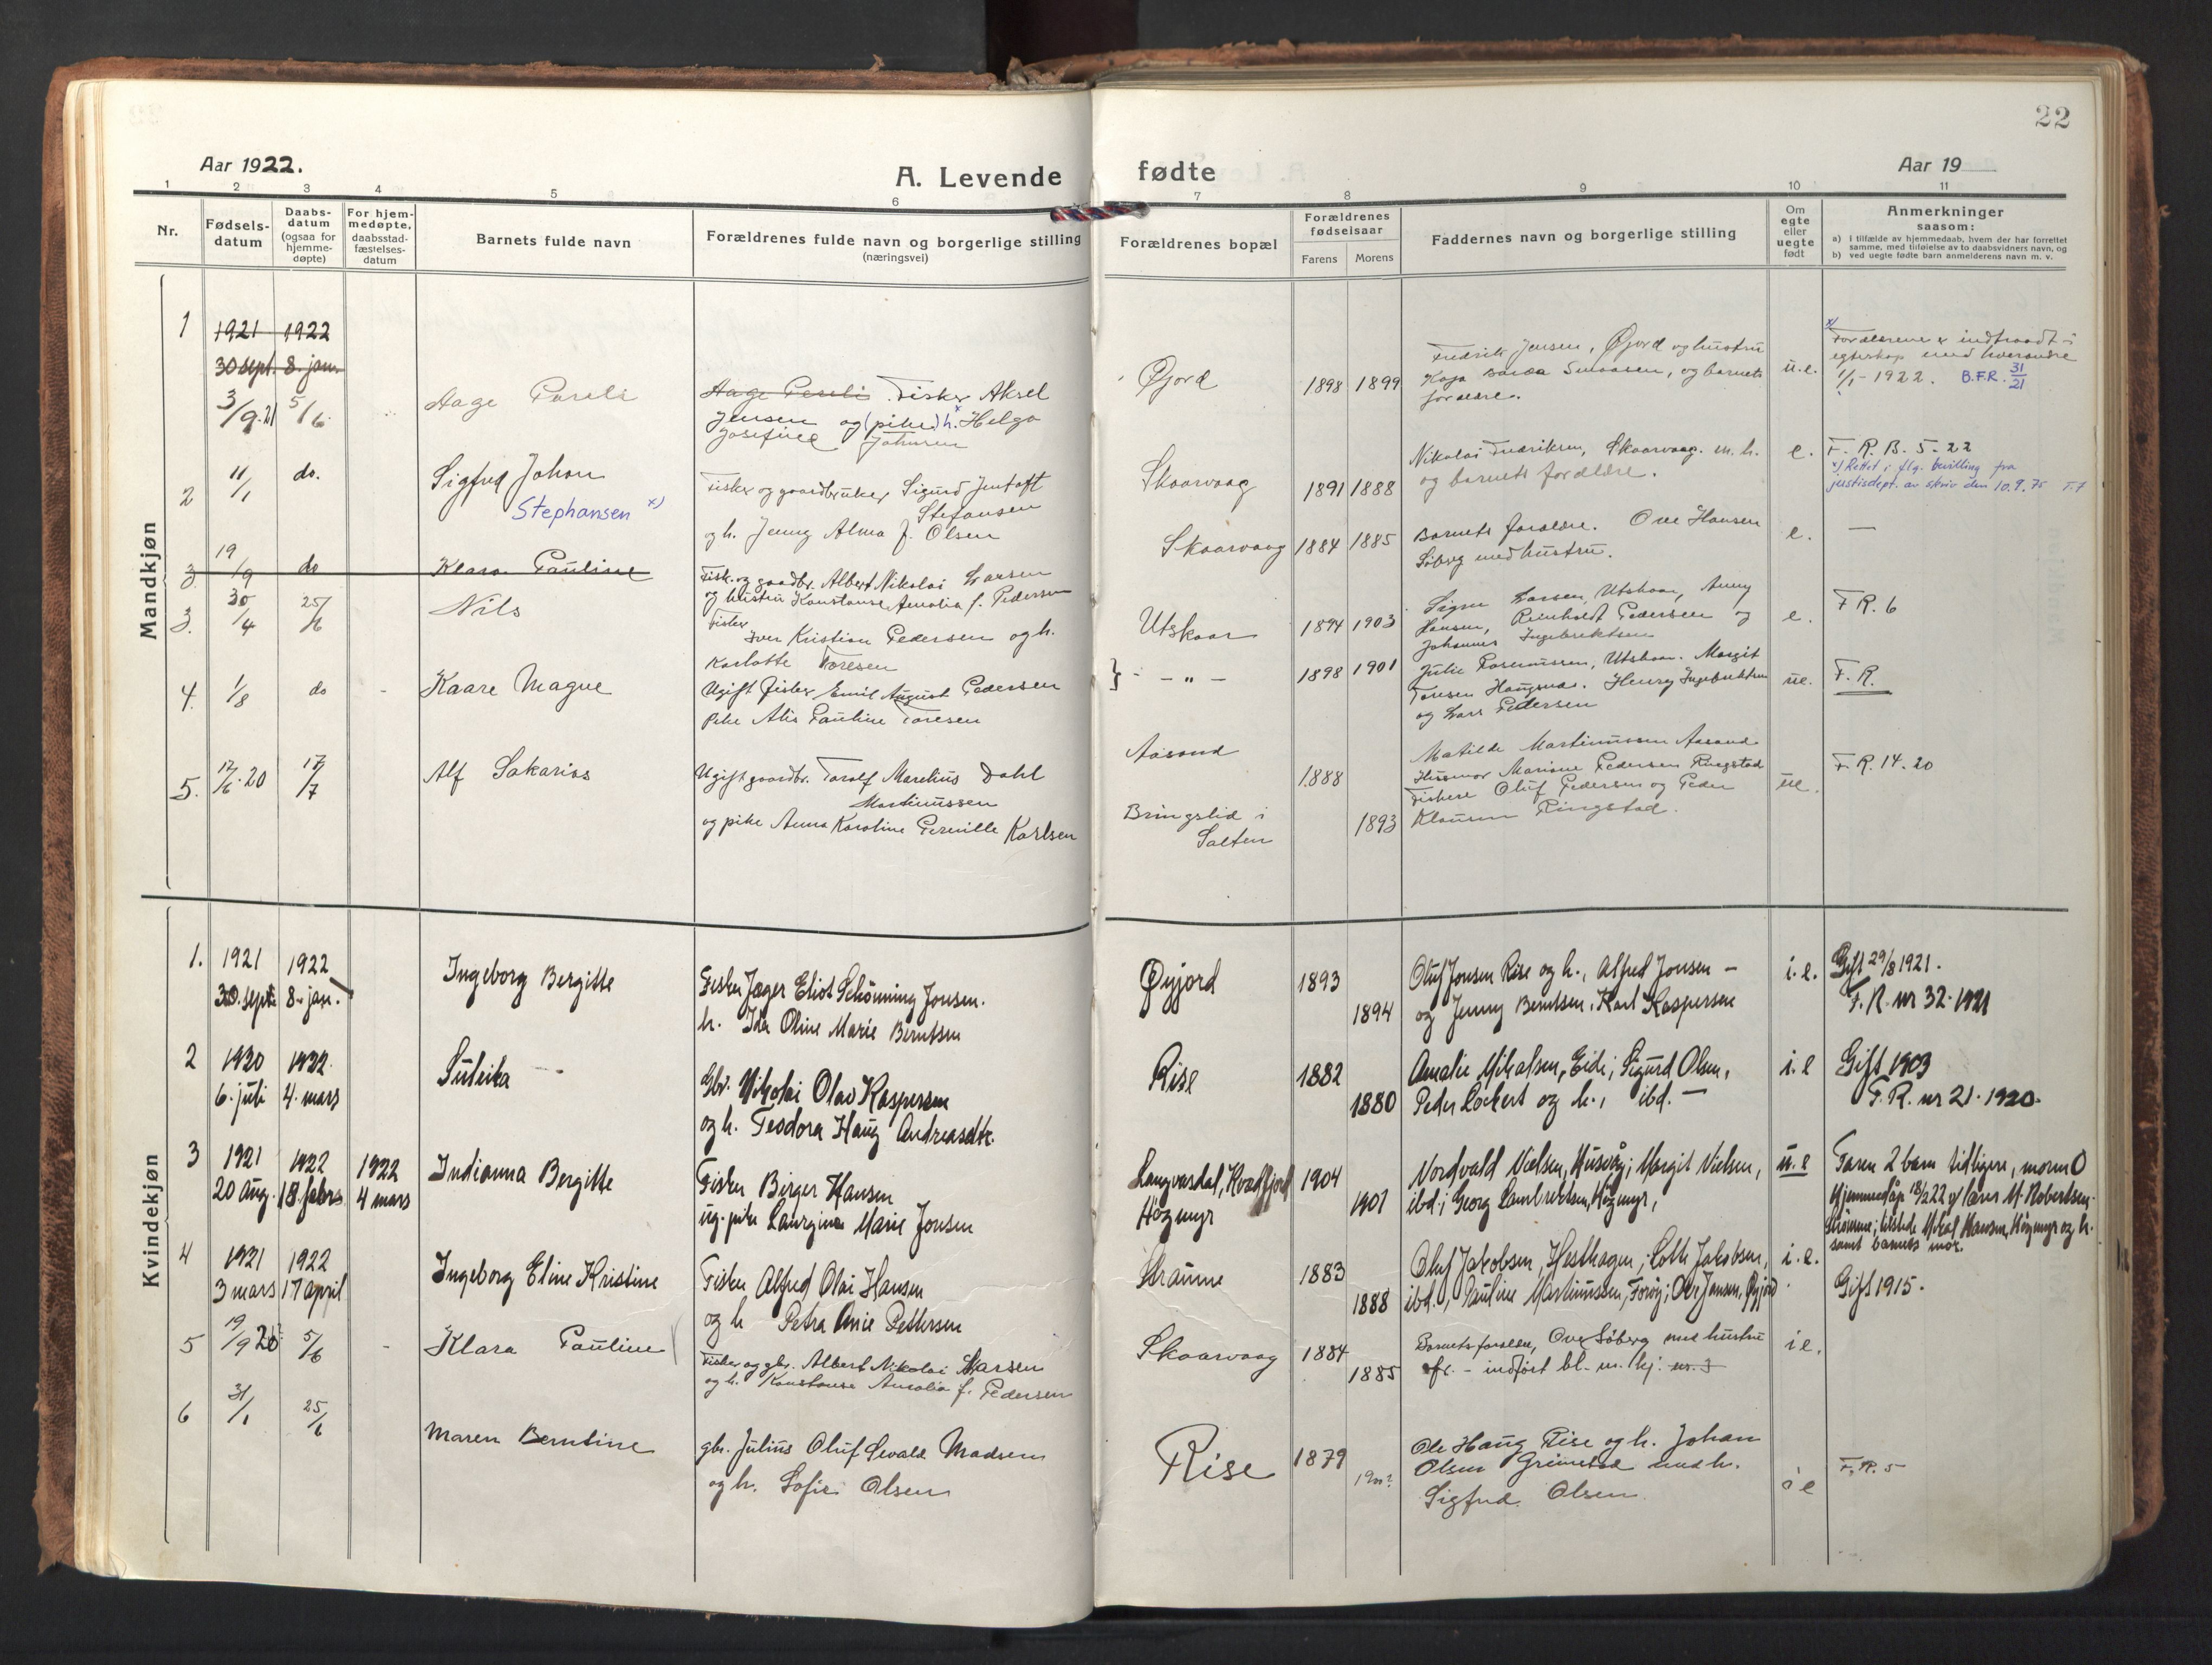 22
Aar 1922.
A. Levende
fødte
Aar 19
1 2 3 4 5 6 7 8 9 10 11
Nr.
Fødsels-
datum
Daabs-
datum
(ogsaa for
hjemme-
døpte)
For hjem-
medøpte,
daabsstad-
fæstelses-
datum
Barnets fulde navn
Forældrenes fulde navn og borgerlige stilling
(næringsvei)
Forældrenes bopæl
Forældrenes
fødselsaar
Farens Morens
Faddernes navn og borgerlige stilling
Om
egte
eller
uegte
født
Anmerkninger
saasom:
a) i tilfælde av hjemmedaab, hvem der har forrettet
samme, med tilføielse av to daabsvidners navn, og
b) ved uegte fødte barn anmelderens navn m. v.
Mandkjøn
1 1921 1922
30 sept. 8. jan.
3/9. 21 5/6
Aage Pareli
Aage Pareli Fisker Aksel
Jensen og (pike) h. x Helga
Josefine Johnsen
Øjord
1898 1899
Fredrik Jensen, Øjord og hustru
Kaja, og barnets
forældre.
u.e.
x) Forældrene er indtraadt i
egteskap med hverandre
1/1 - 1922. B.F.R. 31/21
2
11/1 do.
Sigfred Johan
Stephansen x)
Fisker og gaardbruker Sigurd Jentoft
Stefansen
og h. Jenny Alma f. Olsen
Skaarvaag
1891 1888
Nikolai Fredriksen, Skaarvaag m. h.
og barnets forældre.
e.
F. R. B. 5. 22
x) Rettet i flg. bevilling fra
justisdept. av skriv den 10.9.75
3 19/9 do
Klara Pauline
Fisk. og gaardbr. Albert Nikolai Larsen
og hustru Konstanse Amalia f. Pedersen
Skaarvaag
1884 1885
Barnets forældre. Ove Hansen
Søberg med hustru.
e.
—
3. 30/4 25/6
Nils
Fisker
Iver Kristian Pedersen og h.
Karlotte Toresen
Utskaar
1894 1903
Signe Larsen, Utskaar, Anny
Hansen, Reinholdt Pedersen og
Johannes Ingebriktsen
e.
F R. 6
4. 1/8 do -
Kaare Magne
Ugift fisker Emil August Pedersen
Pike Alis Pauline Toresen
} - - " -
1898 1901
Julie Rasmussen, Utskaar. Margit
Toresen Haugsnes. Henry Ingebriktsen
og Lars Pedersen
ue.
F. R.
5. 17/6. 20 17/7
Alf Sakarias
Ugift gaardbr. Toralf Marelius Dahl
Martinussen
og pike Anna Karoline Pernille Karlsen
Aasand
Bringslid i
Salten
1888
1893
Matilde Martinussen Aasand
Husmor Mariane Pedersen Ringstad
Fiskere Oluf Pedersen og Peder
Klausen Ringstad.
ue.
F. R. 14. 20
Kvindekjøn
1. 1921 1922
30. sept. 8. jan.
Ingeborg Bergitte
Fisker Jæger Eliot Schønning Jonsen.
h. Ida Oline Marie Berntsen
Øyjord
1893
1894
Oluf Jonsen Rise og h., Alfred Jonsen -
og Jenny Berntsen. Karl Kaspersen
i. e.
Gift 29/8 1921.
F. R. nr 32. 1921
2 1920 1922
6. juli 4. mars
Suleika
Gbr. Nikolai Olav Kaspersen
og h. Teodora Haug Andreasdtr.
Rise
1882
1880
Amalie Mikalsen, Eide; Sigurd Olsen,
Peder Lockert og h., ibd. -
i. e
Gift 1903
F. R. nr 21. 1920.
3 1921 1922 1922
20 aug. 18. febr 4 mars
Indianna Bergitte
Fisker Birger Hansen
ug. pike Laurgina Marie Jonsen
Langvasdal, Kvædfjord
Høgmyr
1904
1901
Nordvald Nielsen, Husvåg; Margit Nielsen,
ibd.; Georg Lambrektsen, Høgmyr,
u. e
Faren 2 barn tidligere, moren 0
Hjemmedåp 18/2 22 v/ lærer M. Robertsen
Straumne; tilstede Mikal Hansen, Høgmyr og h.
samt barnets mor.
4 1921 1922
3 mars 17 april
Ingeborg Eline Kristine
Fisker Alfred Olai Hansen
og h Petra Anie Pettersen
Straume
1883
1888
Oluf Jakobsen, Hesthagen; Lotte Jakobsen,
ibd., Pauline Martinussen, Forøy; Ove Jansen, Øyjord
i. e.
Gift 1915.
5 19/9 20 5/6 -
Klara Pauline
Fisker og gbr. Albert Nikolai Larsen
og h. Konstanse Amalia f. Pedersen
Skaarvaag
1884
1885
Barnets forældre, Ove Søberg med hustru
- indført bl. m. kj. nr. 3
i e.
6 31/1 25/6
Maren Berntine
gbr. Julius Oluf Sevald Madsen
og h. Sofie Olsen
Rise
1879
Ole Haug Rise og h. Johan
Olsen Grimstad med h.
Sigfred Olsen
i e
F. R. 5